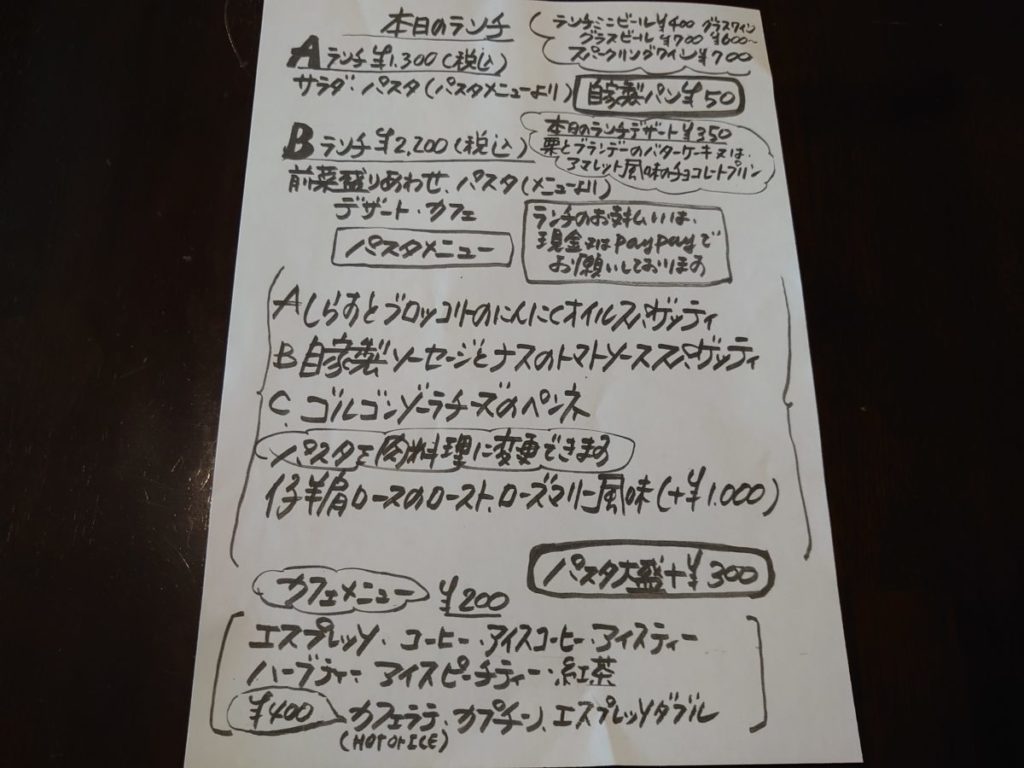 本日のランチ
ランチミニビール¥400 グラスワイン
グラスビール ¥700 ¥600~
スパークリングワイン¥700
Aランチ¥1,300(税込)
サラダ・パスタ(パスタメニューより)
自家製パン¥50
Bランチ¥2,200(税込)
本日のランチデザート¥350
栗とブランデーのバターケーキ又は、
アマレット風味のチョコレートプリン
前菜盛りあわせ、パスタ(メニューより)
デザート・カフェ
ランチのお支払いは、
現金又はpaypayで
お願いしております
パスタメニュー
Aしらすとブロッコリーのにんにくオイルスパゲッティ
B自家製ソーセージとナスのトマトソーススパゲッティ
C.ゴルゴンゾーラチーズのペンネ
パスタを肉料理に変更できます
仔羊肩ロースのロースト、ローズマリー風味(+¥1,000)
パスタ大盛+¥300
カフェメニュー ¥200
エスプレッソ・コーヒー・アイスコーヒー・アイスティー
ハーブティー・アイスピーチティー・紅茶
¥400 カフェラテ、カプチーノ、エスプレッソダブル
(HOT or ICE)